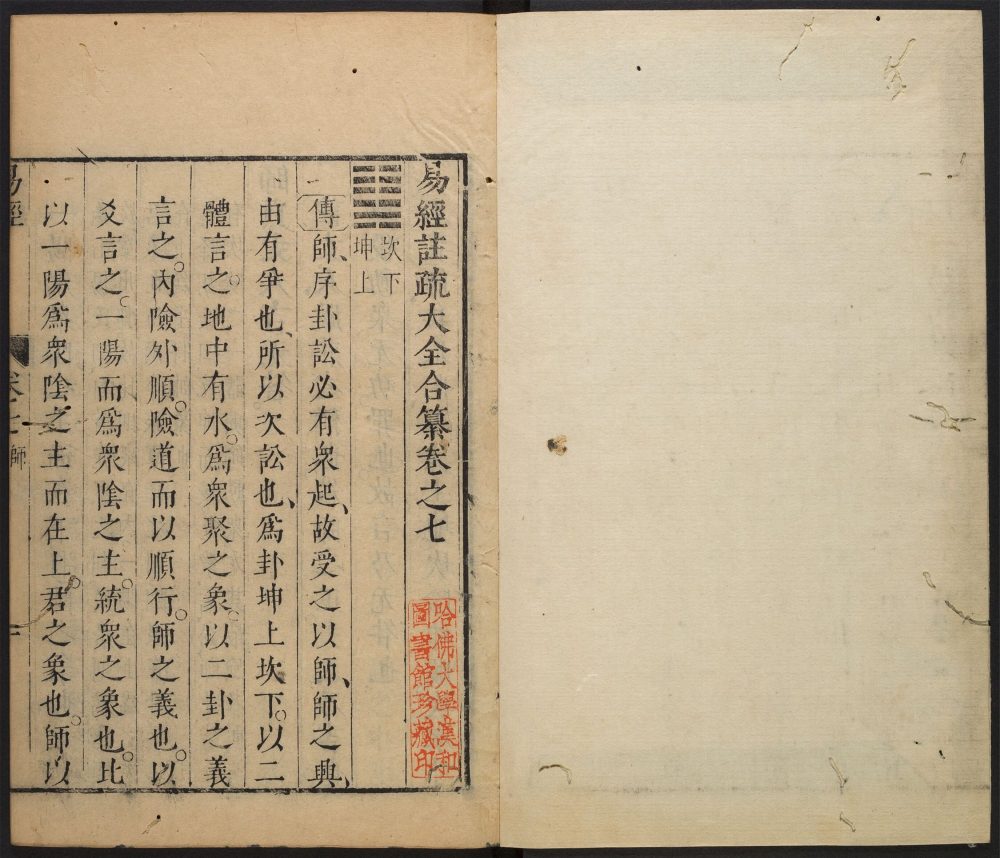 易經註疏大全合纂卷之七
哈佛大學漢和
圖書館珍藏印
坎下
坤上
傳師、序卦訟必有衆起、故受之以師、師之興、
由有爭也、所以次訟也、爲卦坤上坎下。以二
體言之。地中有水。爲衆聚之象。以二卦之義
言之。內險外順。險道而以順行。師之義也。以
爻言之。一陽而爲衆陰之主。統衆之象也。比
以一陽爲衆陰之主而在上。君之象也。師以
易經
卷之七
師